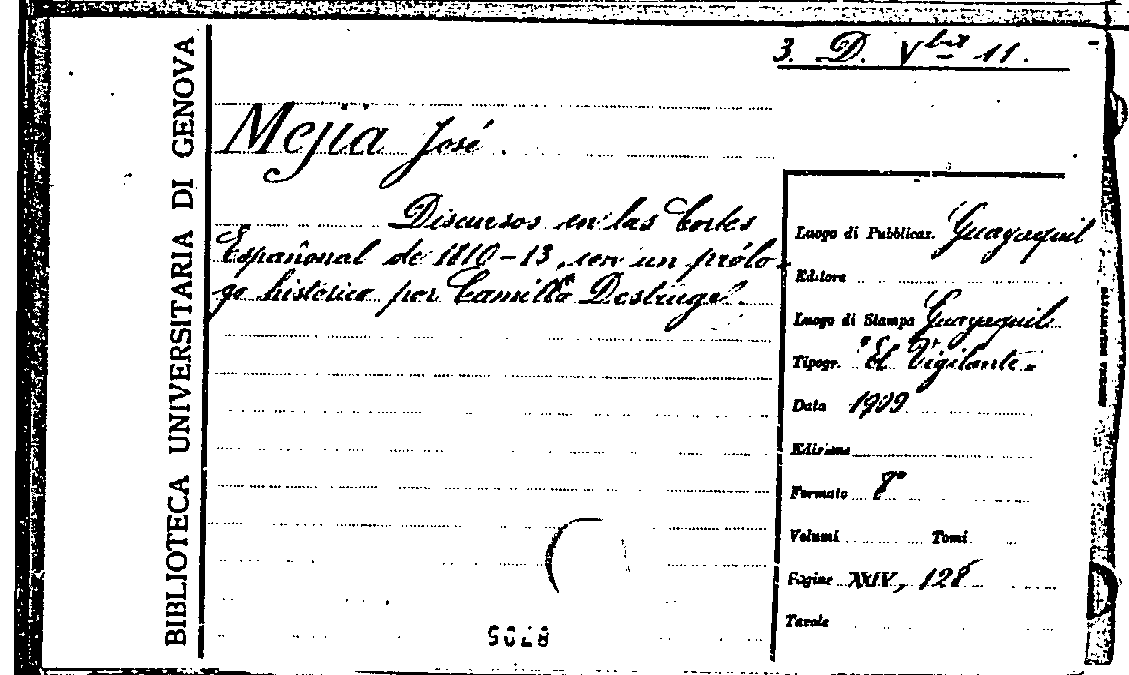 3. D. V
11.
BIBLIOTECA UNIVERSITARIA DI GENOVA
Mejía José.
Discursos en las Cortes
Españonal de 1810-13, con un prólo-
go histórico por Camillo Destruge.
Luogo di Pubblicaz. Guayaquil
Editore
Luogo di Stampa Guayaquil
Tipogr. "El Vigilante"
Data 1909
Edizione
Formato 8°
Volumi Tomi
Pagine XXIV, 128
Tavole